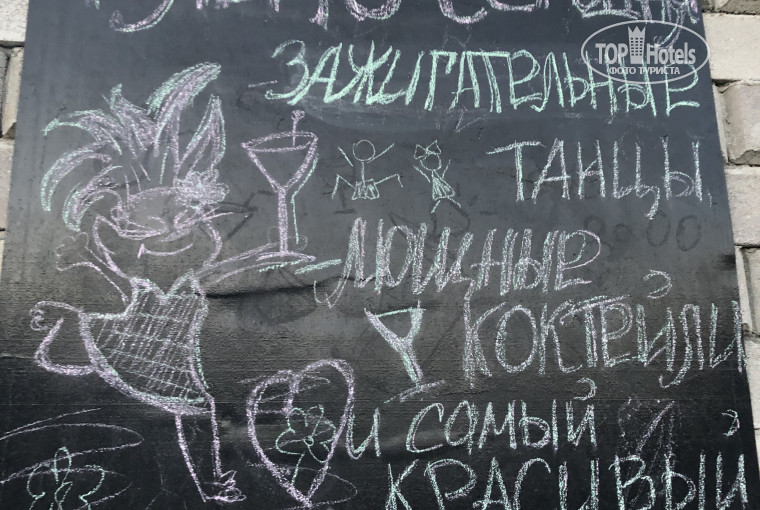 ЗАЖИГАТЕЛЬНЫЕ
ТАНЦЫ,
МОЩНЫЕ
КОКТЕЙЛИ
И САМЫЙ
КРАСИВЫЙ
TOP Hotels
ФОТО ТУРИСТА